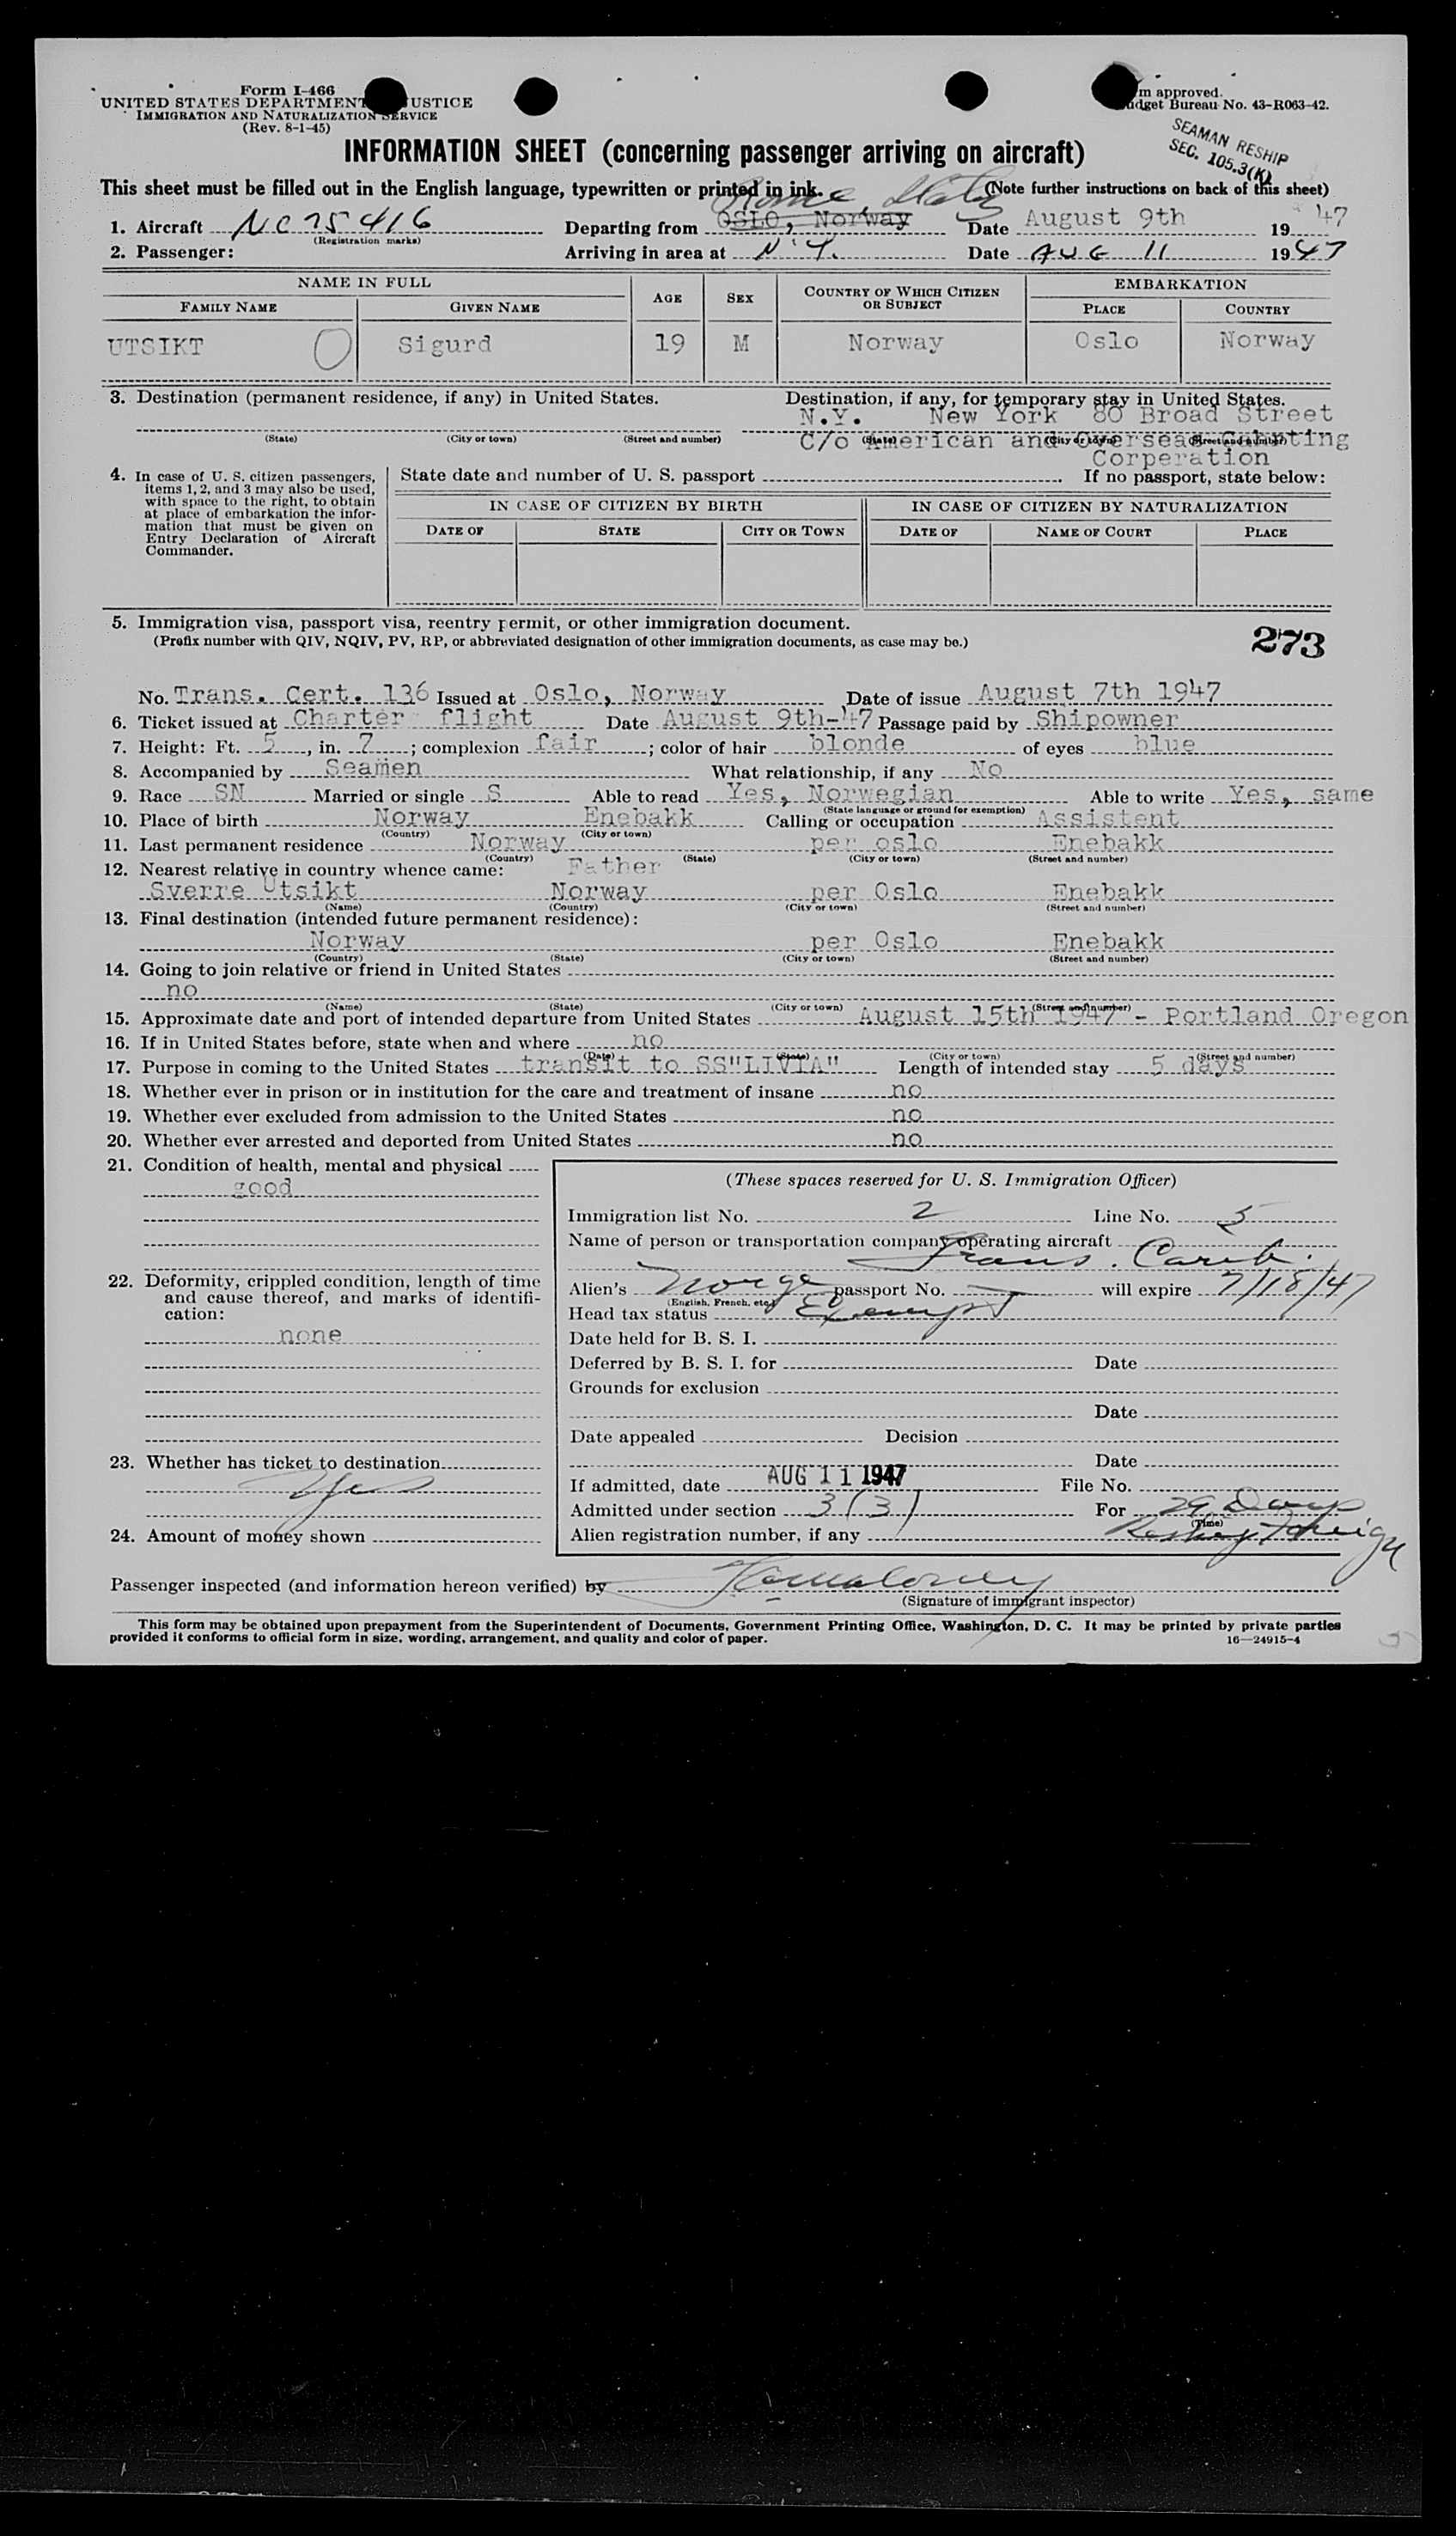 Form I-466
UNITED STATES DEPARTMENT USTICE
IMMIGRATION AND NATURALIZATION SERVICE
(Rev. 8-1-45)
m approved.
dget Bureau No. 43-R063-42.
SEAMAN RESHIP
SEC. 105.3(K)
INFORMATION SHEET (concerning passenger arriving on aircraft)
This sheet must be filled out in the English language, typewritten or printed in ink. (Note further instructions on back of this sheet)
Rome, Italy
1. Aircraft NC 75416 Departing from OSLO, Norway Date August 9th 1947
(Registration marks)
2. Passenger: Arriving in area at N.Y. Date AUG 11 1947
NAME IN FULL AGE SEX COUNTRY OF WHICH CITIZEN OR SUBJECT EMBARKATION
FAMILY NAME GIVEN NAME PLACE COUNTRY
UTSIKT Sigurd 19 M Norway Oslo Norway
3. Destination (permanent residence, if any) in United States. Destination, if any, for temporary stay in United States.
N.Y. New York 80 Broad Street
(State) (City or town) (Street and number) (State) (City or town) (Street and number)
C/o American and Overseas
Corperation
4. In case of U. S. citizen passengers, items 1, 2, and 3 may also be used, with space to the right, to obtain at place of embarkation the information that must be given on Entry Declaration of Aircraft Commander.
State date and number of U. S. passport If no passport, state below:
IN CASE OF CITIZEN BY BIRTH IN CASE OF CITIZEN BY NATURALIZATION
DATE OF STATE CITY OR TOWN DATE OF NAME OF COURT PLACE
5. Immigration visa, passport visa, reentry permit, or other immigration document.
(Prefix number with QIV, NQIV, PV, RP, or abbreviated designation of other immigration documents, as case may be.)
273
No. Trans. Cert. 136 Issued at Oslo, Norway Date of issue August 7th 1947
6. Ticket issued at Charter flight Date August 9th-47 Passage paid by Shipowner
7. Height: Ft. 5, in. 7; complexion fair; color of hair blonde of eyes blue
8. Accompanied by Seamen What relationship, if any No
9. Race SN Married or single S Able to read Yes, Norwegian Able to write Yes, same
(State language or ground for exemption)
10. Place of birth Norway Enebakk Calling or occupation Assistent
(Country) (City or town)
11. Last permanent residence Norway per oslo Enebakk
(Country) (State) (City or town) (Street and number)
12. Nearest relative in country whence came: Father
Sverre Utsikt Norway per Oslo Enebakk
(Name) (Country) (City or town) (Street and number)
13. Final destination (intended future permanent residence):
Norway per Oslo Enebakk
(Country) (State) (City or town) (Street and number)
14. Going to join relative or friend in United States
no
(Name) (State) (City or town) (Street and number)
15. Approximate date and port of intended departure from United States August 15th 1947 - Portland Oregon
16. If in United States before, state when and where no
(Date) (State) (City or town) (Street and number)
17. Purpose in coming to the United States transit to SS"LIVIA" Length of intended stay 5 days
18. Whether ever in prison or in institution for the care and treatment of insane no
19. Whether ever excluded from admission to the United States no
20. Whether ever arrested and deported from United States no
21. Condition of health, mental and physical
good
22. Deformity, crippled condition, length of time and cause thereof, and marks of identification:
none
23. Whether has ticket to destination
Yes
24. Amount of money shown
(These spaces reserved for U. S. Immigration Officer)
Immigration list No. 2 Line No. 5
Name of person or transportation company operating aircraft
Trans. Carib.
Alien's Norge passport No. will expire 7/18/47
(English, French, etc.)
Head tax status Exempt
Date held for B. S. I.
Deferred by B. S. I. for Date
Grounds for exclusion
Date
Date appealed Decision
Date
If admitted, date AUG 11 1947 File No.
Admitted under section 3(3) For 29 Days
(Time)
Alien registration number, if any Reship Foreign
Passenger inspected (and information hereon verified) by
(Signature of immigrant inspector)
This form may be obtained upon prepayment from the Superintendent of Documents, Government Printing Office, Washington, D. C. It may be printed by private parties
provided it conforms to official form in size, wording, arrangement, and quality and color of paper.
16—24915-4